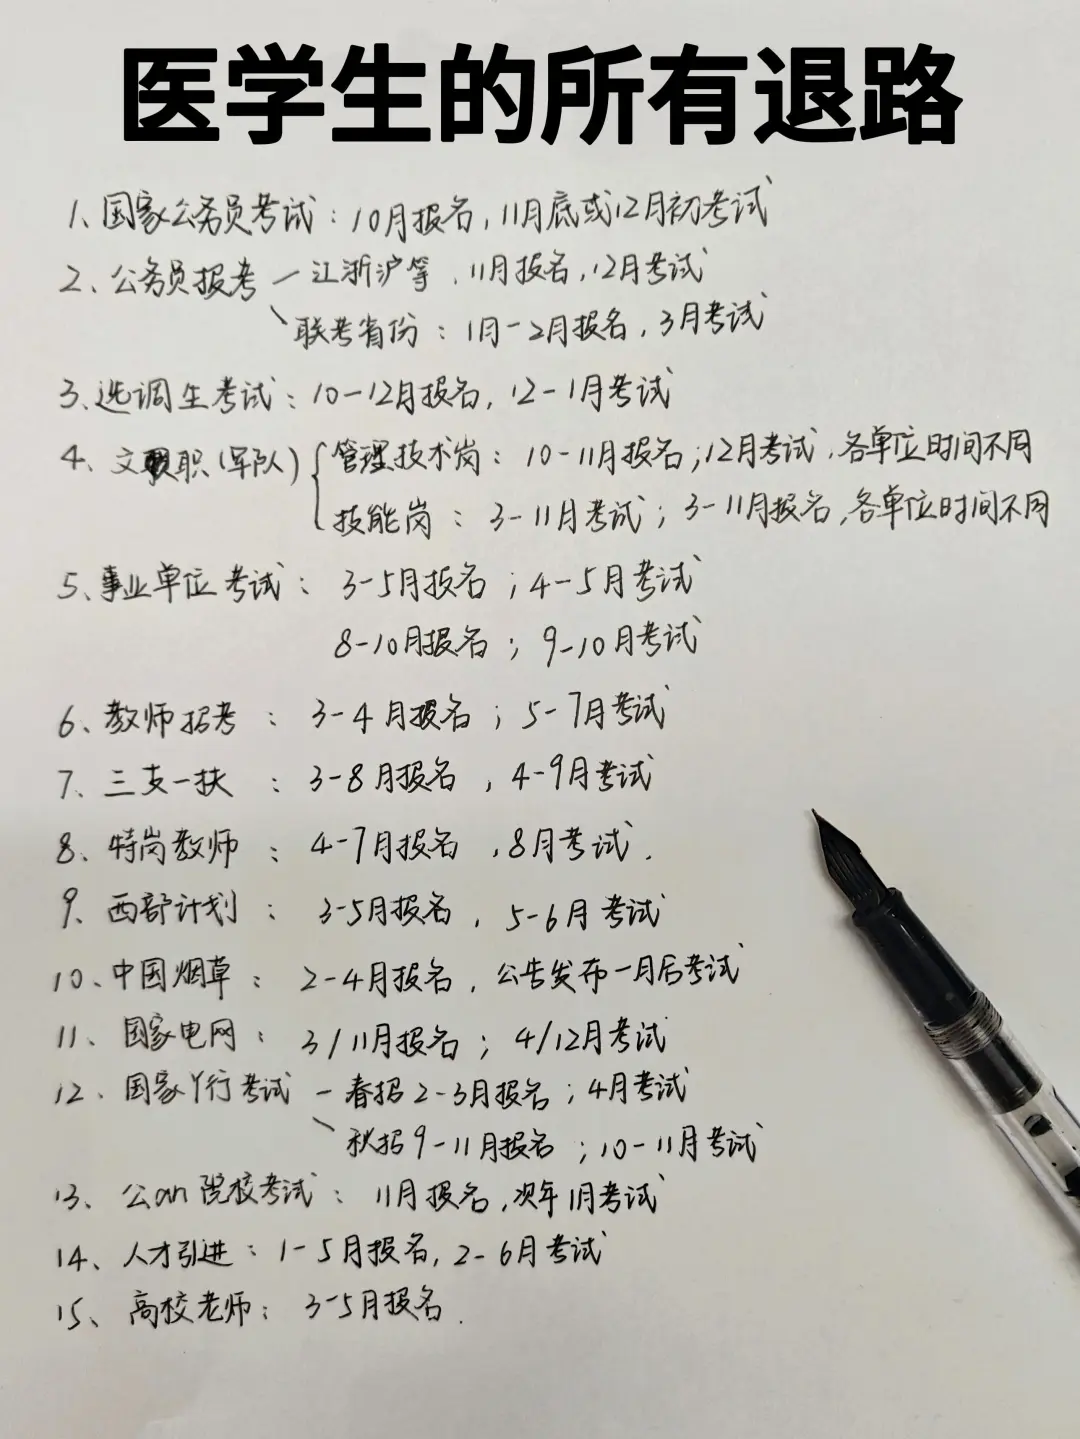 医学生的所有退路
1、国家公务员考试：10月报名，11月底或12月初考试
2、公务员报考 — 江浙沪等，11月报名，12月考试
联考省份：1月-2月报名，3月考试
3、选调生考试：10-12月报名，12-1月考试
4、文职（军队） 管理技术岗：10-11月报名；12月考试，各单位时间不同
技能岗：3-11月考试；3-11月报名，各单位时间不同
5、事业单位考试：3-5月报名；4-5月考试
8-10月报名；9-10月考试
6、教师招考：3-4月报名；5-7月考试
7、三支一扶：3-8月报名，4-9月考试
8、特岗教师：4-7月报名，8月考试.
9、西部计划：3-5月报名，5-6月考试
10、中国烟草：2-4月报名，公告发布一月后考试
11、国家电网：3/11月报名；4/12月考试
12、国家Y行考试 — 春招2-3月报名；4月考试
秋招9-11月报名；10-11月考试
13、公an院校考试：11月报名，次年1月考试
14、人才引进：1-5月报名，2-6月考试
15、高校老师：3-5月报名.